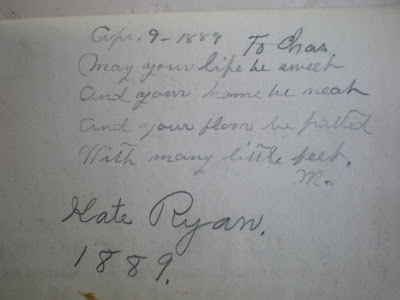 Apr. 9 - 1889 To Chas.
May your life be sweet
And your home be neat
And your floor be patted
With many little feet.
M..
Kate Ryan.
1889.